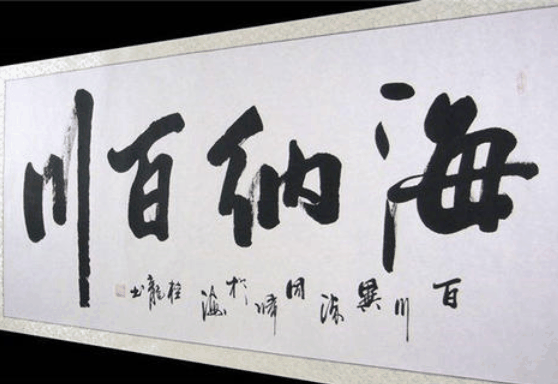 海纳百川
百川異源同归於海 桂龍书